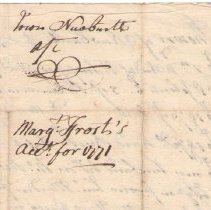 Town Newburth
a/c
Margt. Frost's
Acct. for 1771